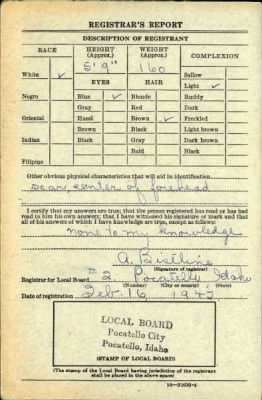 REGISTRAR'S REPORT
DESCRIPTION OF REGISTRANT
RACE HEIGHT (Approx.) WEIGHT (Approx.) COMPLEXION
5' 9" 160 Sallow
White ✓ EYES HAIR Light ✓
Negro Blue ✓ Blonde Ruddy
Gray Red Dark
Oriental Hazel Brown ✓ Freckled
Brown Black Light brown
Indian Black Gray Dark brown
Bald Black
Filipino
Other obvious physical characteristics that will aid in identification
scar, center of forehead
I certify that my answers are true; that the person registered has read or has had
read to him his own answers; that I have witnessed his signature or mark and that
all of his answers of which I have knowledge are true, except as follows:
none to my knowledge
A. Bistline
(Signature of registrar)
Registrar for Local Board 2 Pocatello Idaho
(Number) (City or county) (State)
Date of registration Feb. 16 1942
LOCAL BOARD
Pocatello City
Pocatello, Idaho
(STAMP OF LOCAL BOARD)
(The stamp of the Local Board having jurisdiction of the registrant
shall be placed in the above space)